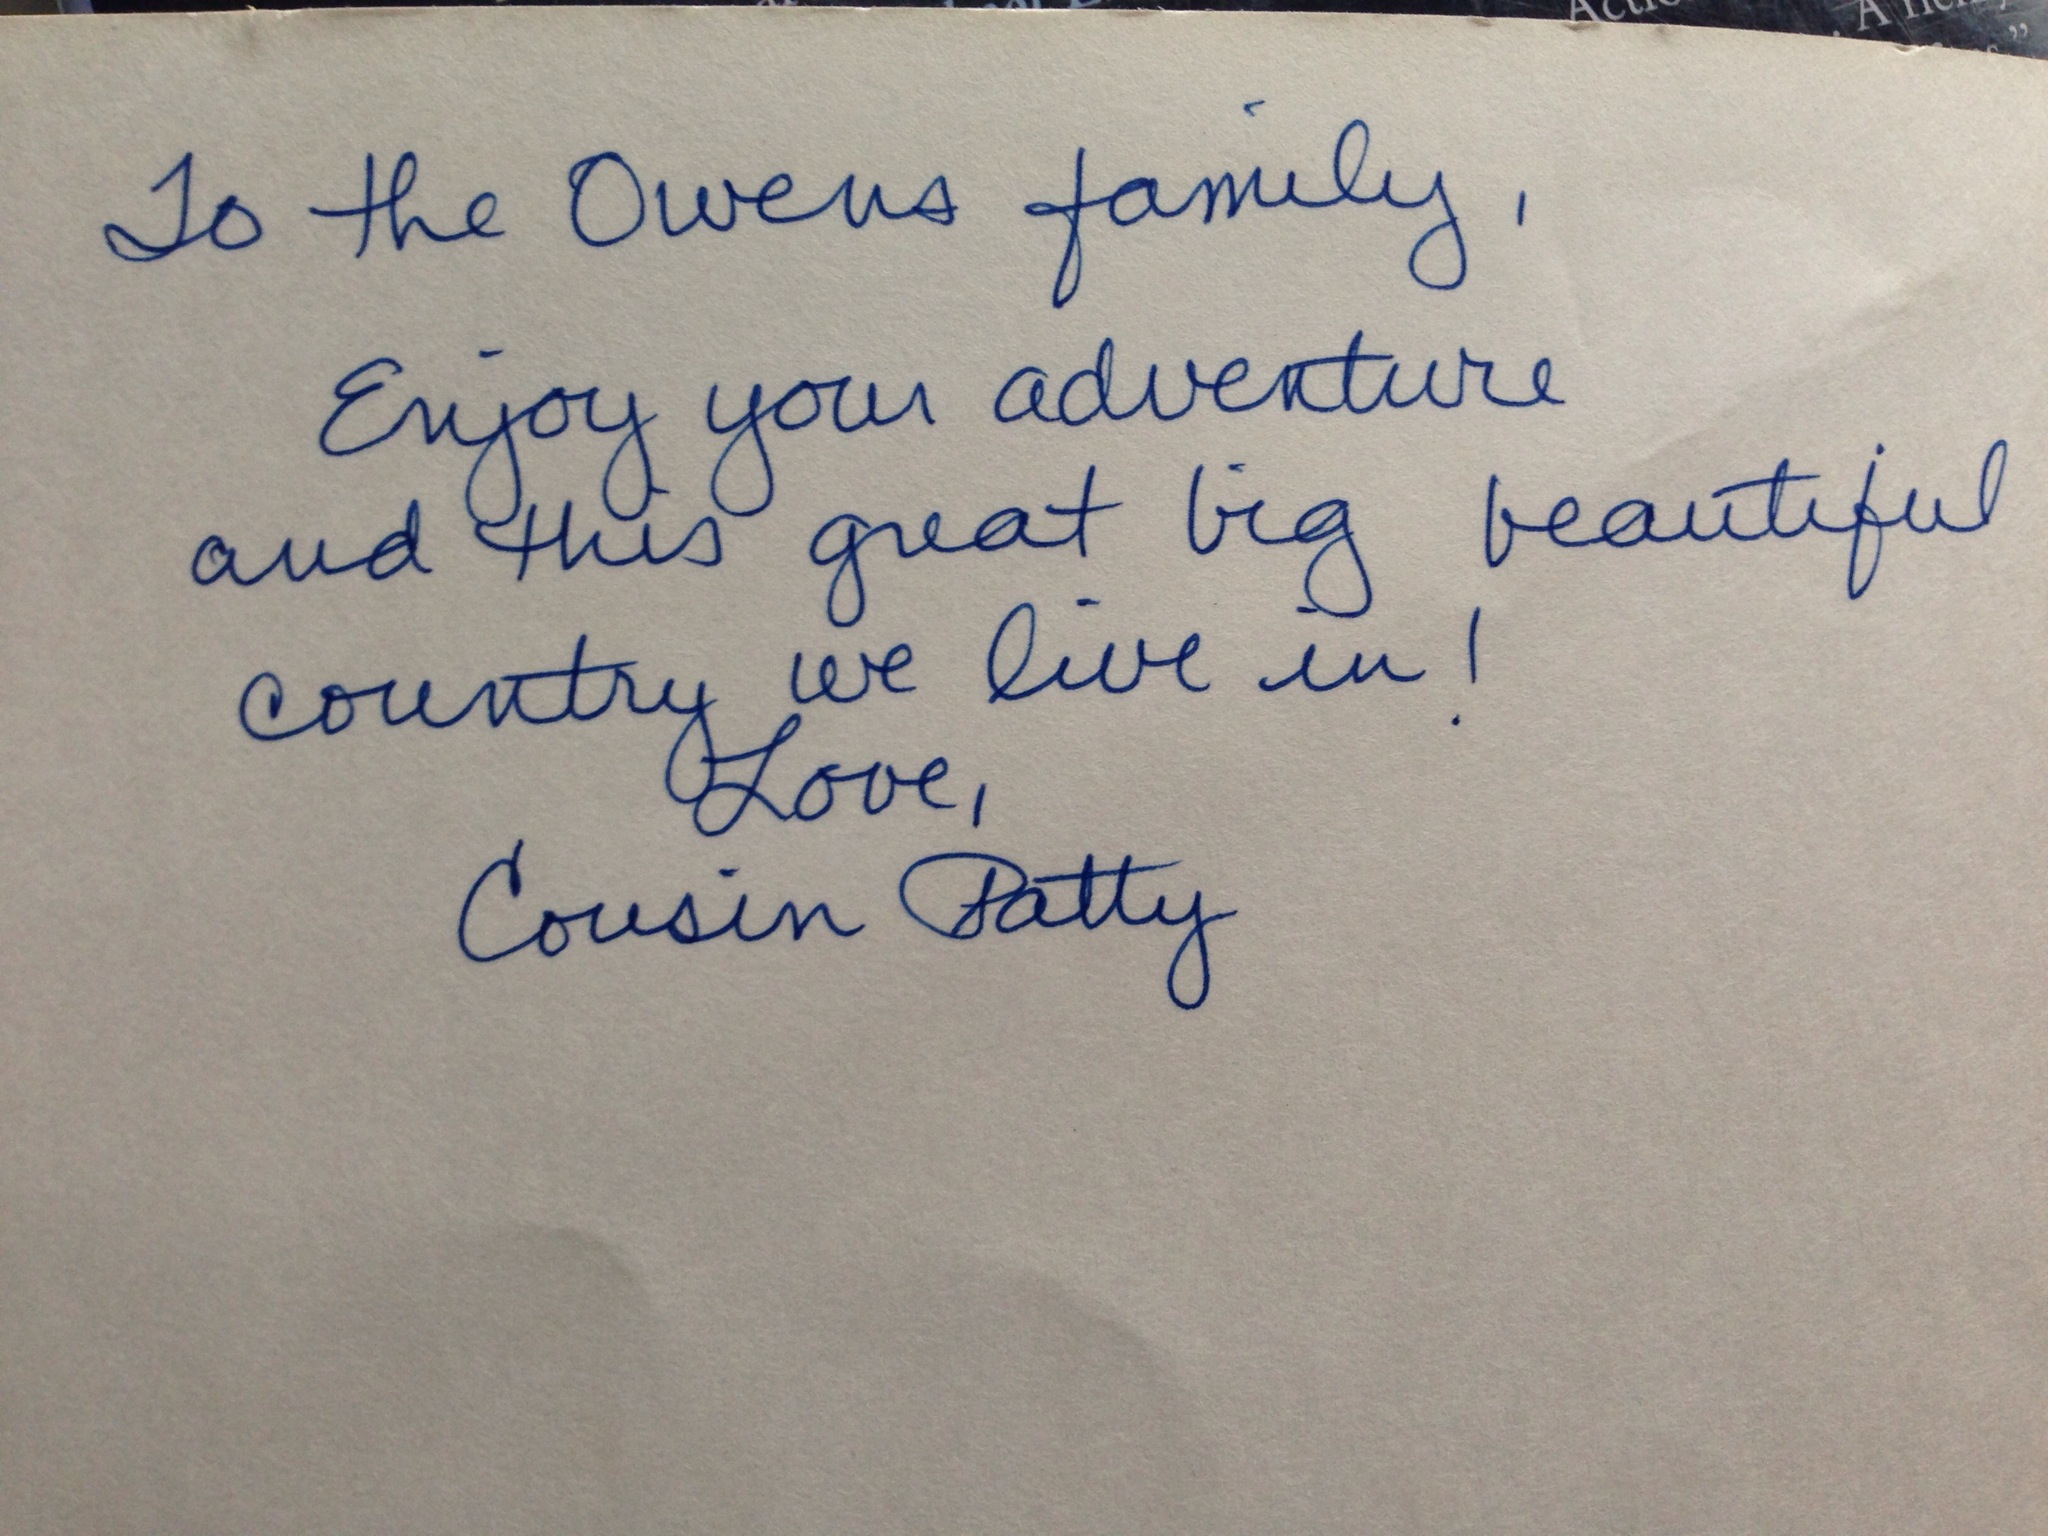 Actio
A
To the Owens family,
Enjoy your adventure
and this great big beautiful
country we live in!
Love,
Cousin Patty